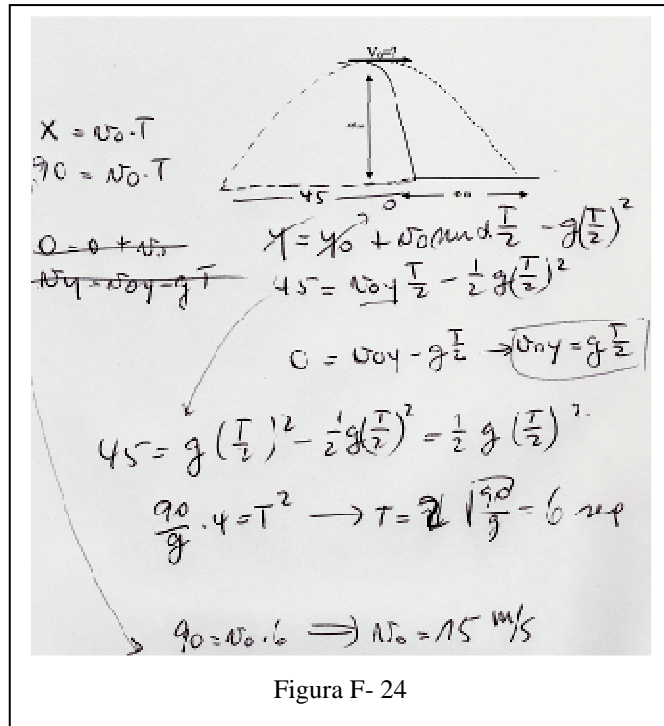 V₀=?
X = v₀·T
90 = v₀·T
45
0
0 = 0 + v₀
y = y₀ + v₀ T/2 - g(T/2)²
vy = v₀y - gT
45 = v₀y T/2 - 1/2 g(T/2)²
0 = v₀y - g T/2 → v₀y = g T/2
45 = g(T/2)² - 1/2 g(T/2)² = 1/2 g (T/2)²
90/g · 4 = T² → T = 2 √90/g = 6 seg
90 = v₀·6 ⇒ v₀ = 15 m/s
Figura F- 24